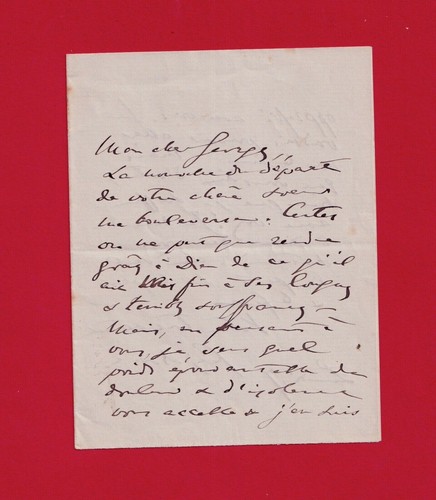 Mon cher Georges,
La nouvelle du départ
de votre chère soeur
me bouleverse. Certes
on ne peut que rendre
grâce à Dieu de ce qu'il
ait mis fin à ses longues
& terribles souffrances –
Mais, en pensant à
vous je sens quel
poids épouvantable de
douleur & d'isolement
vous accable & j'en suis